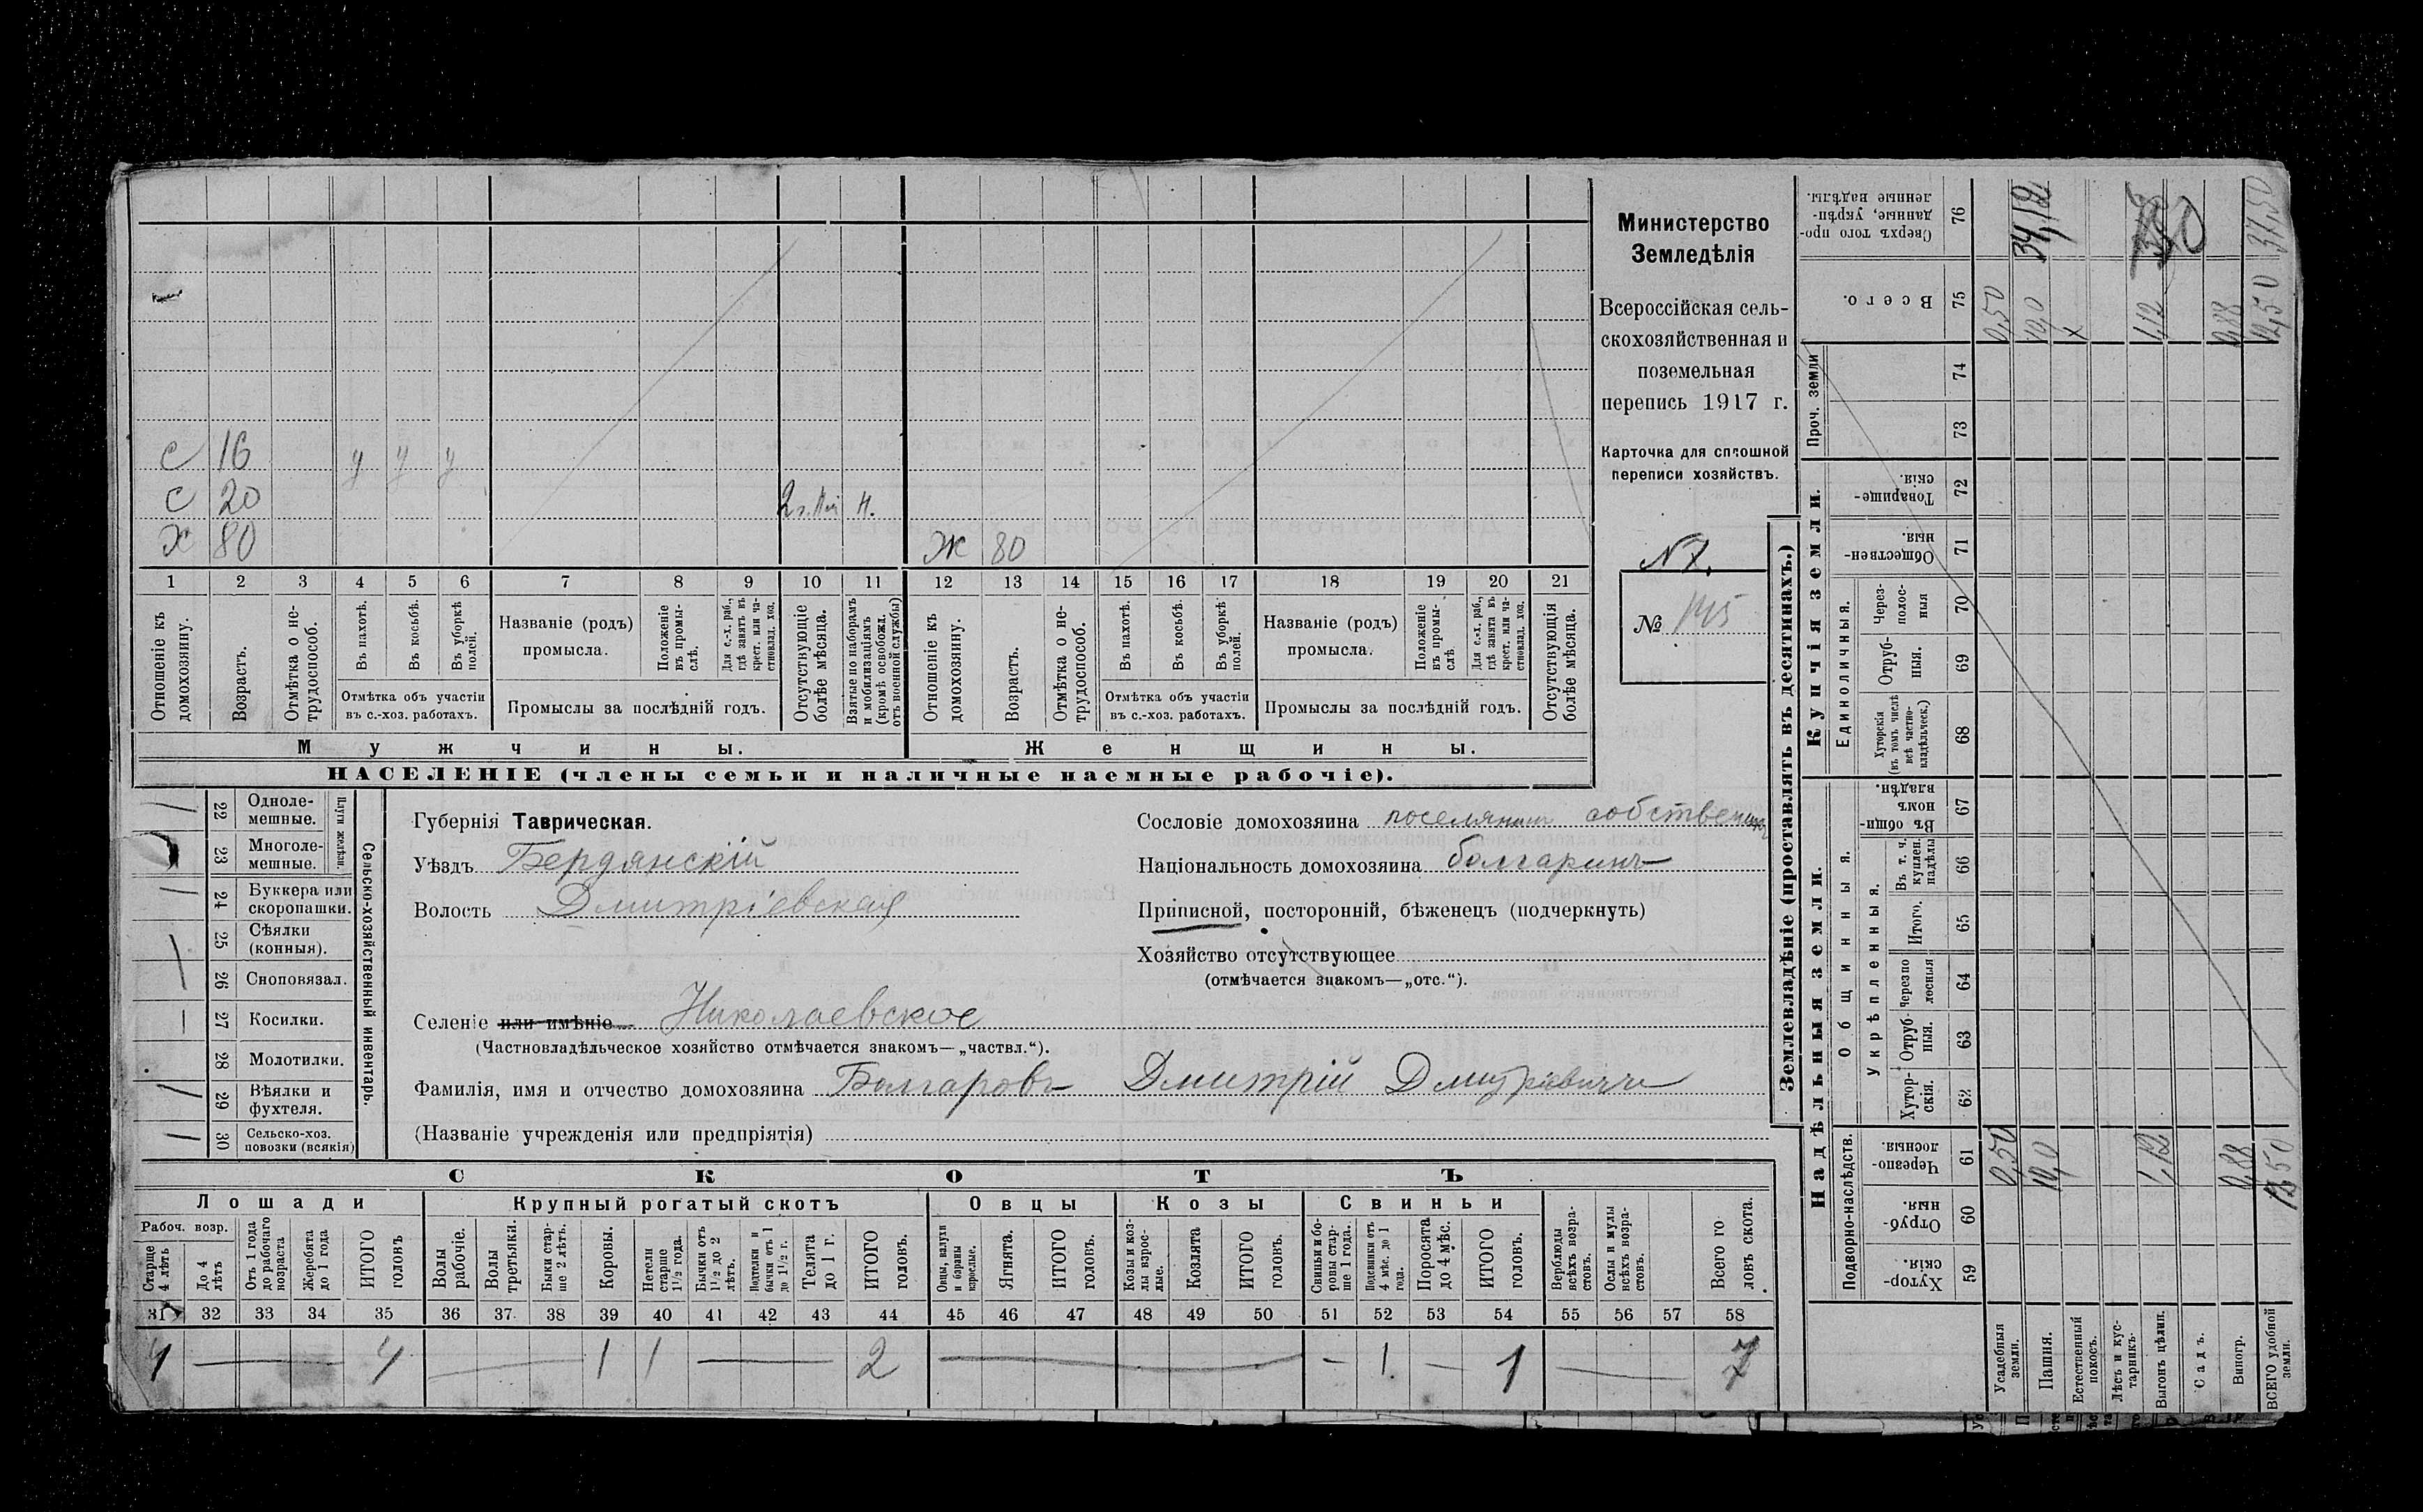 С 16 у у у
С 20 2 г. Н.
Х 80 Ж 80
1 2 3 4 5 6 7 8 9 10 11 12 13 14 15 16 17 18 19 20 21
Отношеніе къ домохозяину.
Возрастъ.
Отмѣтка о не-
трудоспособ.
Въ пахотѣ.
Въ косьбѣ.
Въ уборкѣ полей.
Отмѣтка объ участіи
въ с.-хоз. работахъ.
Названіе (родъ)
промысла.
Положеніе
въ промы-
слѣ.
Для с.-х. раб.,
гдѣ занятъ въ
крест. или ча-
стновлад. хоз.
Промыслы за послѣдній годъ.
Отсутствующіе
болѣе мѣсяца.
Взятые по наборамъ
и мобилизаціямъ
(кромѣ освобожд.
отъ военной службы)
Отношеніе къ
домохозяину.
Возрастъ.
Отмѣтка о не-
трудоспособ.
Въ пахотѣ.
Въ косьбѣ.
Въ уборкѣ
полей.
Отмѣтка объ участіи
въ с.-хоз. работахъ.
Названіе (родъ)
промысла.
Положеніе
въ промы-
слѣ.
Для с.-х. раб.,
гдѣ занята въ
крест. или ча-
стновлад. хоз.
Промыслы за послѣдній годъ.
Отсутствующія
болѣе мѣсяца.
Мужчины.
Женщины.
НАСЕЛЕНІЕ (члены семьи и наличные наемные рабочіе).
Министерство
Земледѣлія
Всероссійская сель-
скохозяйственная и
поземельная
перепись 1917 г.
Карточка для сплошной
переписи хозяйствъ.
№ 145
22 Одноле-
мешные.
23 Многоле-
мешные.
Плуги желѣзн.
24 Буккера или
скоропашки.
25 Сѣялки
(конныя).
26 Сноповязал.
27 Косилки.
28 Молотилки.
29 Вѣялки и
фухтеля.
30 Сельско-хоз.
повозки (всякія)
Сельско-хозяйственный инвентарь.
Губернія Таврическая.
Уѣздъ Бердянскій
Волость Дмитріевская
Селеніе или имѣніе Николаевское
(Частновладѣльческое хозяйство отмѣчается знакомъ—„частвл.“).
Фамилія, имя и отчество домохозяина Болгаровъ Дмитрій Дмитріевичъ
(Названіе учрежденія или предпріятія)
Сословіе домохозяина поселянинъ собственникъ
Національность домохозяина болгаринъ
Приписной, посторонній, бѣженецъ (подчеркнуть)
Хозяйство отсутствующее
(отмѣчается знакомъ—„отс.“).
СКОТЪ
Лошади
Рабоч. возр.
Старше
4 лѣтъ
До 4
лѣтъ
Отъ 1 года
до рабочаго
возраста
Жеребята
до 1 года
ИТОГО
головъ
Крупный рогатый скотъ
Волы
рабочіе.
Волы
третьяки.
Быки стар-
ше 2 лѣтъ.
Коровы.
Нетели
старше
1½ года.
Бычки отъ
1½ до 2
лѣтъ.
Подтелки и
бычки отъ 1
до 1½ г.
Телята
до 1 г.
ИТОГО
головъ.
Овцы
Овцы, валухи
и бараны
взрослые.
Ягнята.
ИТОГО
головъ.
Козы
Козы и коз-
лы взрос-
лые.
Козлята
ИТОГО
головъ.
Свиньи
Свиньи и бо-
ровы стар-
ше 1 года.
Подсвинки отъ
4 мѣс. до 1
года.
Поросята
до 4 мѣс.
ИТОГО
головъ.
Верблюды
всѣхъ возра-
стовъ.
Ослы и мулы
всѣхъ возра-
стовъ.
Всего го
ловъ скота.
31 32 33 34 35 36 37 38 39 40 41 42 43 44 45 46 47 48 49 50 51 52 53 54 55 56 57 58
4 — 4 — 1 1 — 2 — — 1 — 1 — 7
Землевладѣніе (проставлять въ десятинахъ.)
Сверхъ того про-
данные, укрѣп-
ленные надѣлы.
76
34,12
37,50
Всего.
75
0,50 10,0 х 1,12 0,88 12,50
Купчія земли.
Проч. земли
74
73
Товарище-
скія.
72
Обществен-
ныя.
71
Единоличныя.
Через-
полос-
ныя
70
Отруб-
ныя.
69
Хуторскія
(въ томъ числѣ
всѣ частно-
владѣльческ.)
68
Надѣльныя земли.
Общинныя.
Въ общи-
номъ
владѣн.
67
Укрѣпленныя.
Въ т. ч.
куплен.
надѣлы
66
Итого.
65
Черезпо
лосныя
64
Отруб-
ныя.
63
Хутор-
скія.
62
Подворно-наслѣдств.
Черезпо-
лосныя.
61
0,50 10,0 1,12 0,88 12,50
Отруб-
ныя.
60
Хутор-
скія.
59
Усадебныя
земли.
Пашня.
Естественный
покосъ.
Лѣсъ и кус-
тарникъ.
Выгонъ цѣлин.
Садъ.
Виногр.
ВСЕГО удобной
земли.